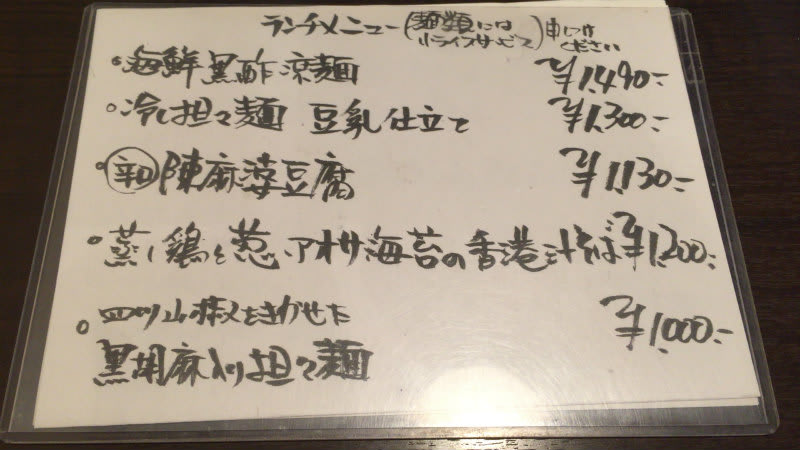 ランチメニュー(麺類には 小ライスサービス) 申しつけ ください
・海鮮黒酢涼麺 ¥1,490-
・冷し担々麺 豆乳仕立て ¥1,300-
・辛口 陳麻婆豆腐 ¥1,130-
・蒸し鶏と葱、アオサ海苔の香港汁そば ¥1,200-
・四川山椒をきかせた ¥1,000-
黒胡麻入り担々麺